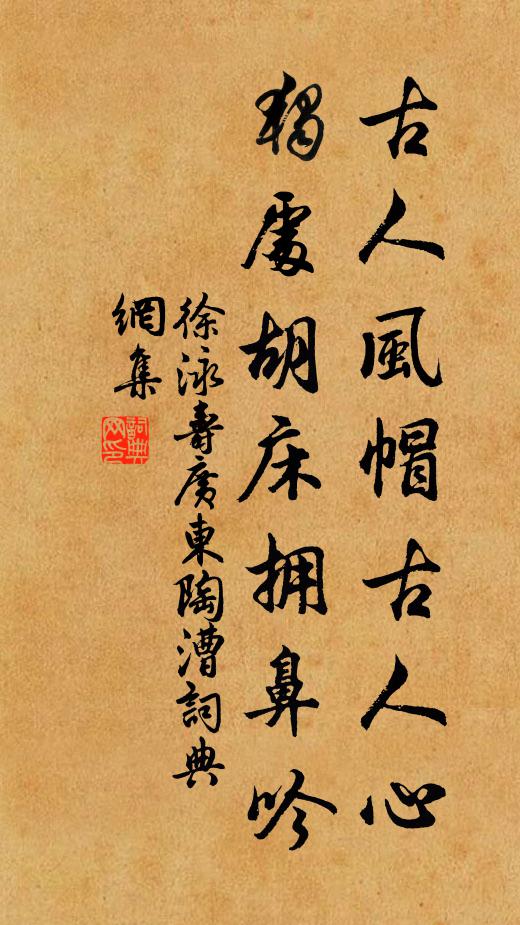 古人風帽古人心
獨處胡床拥鼻吟
徐泳壽廣東陶漕詞典
網集
詞典
网印